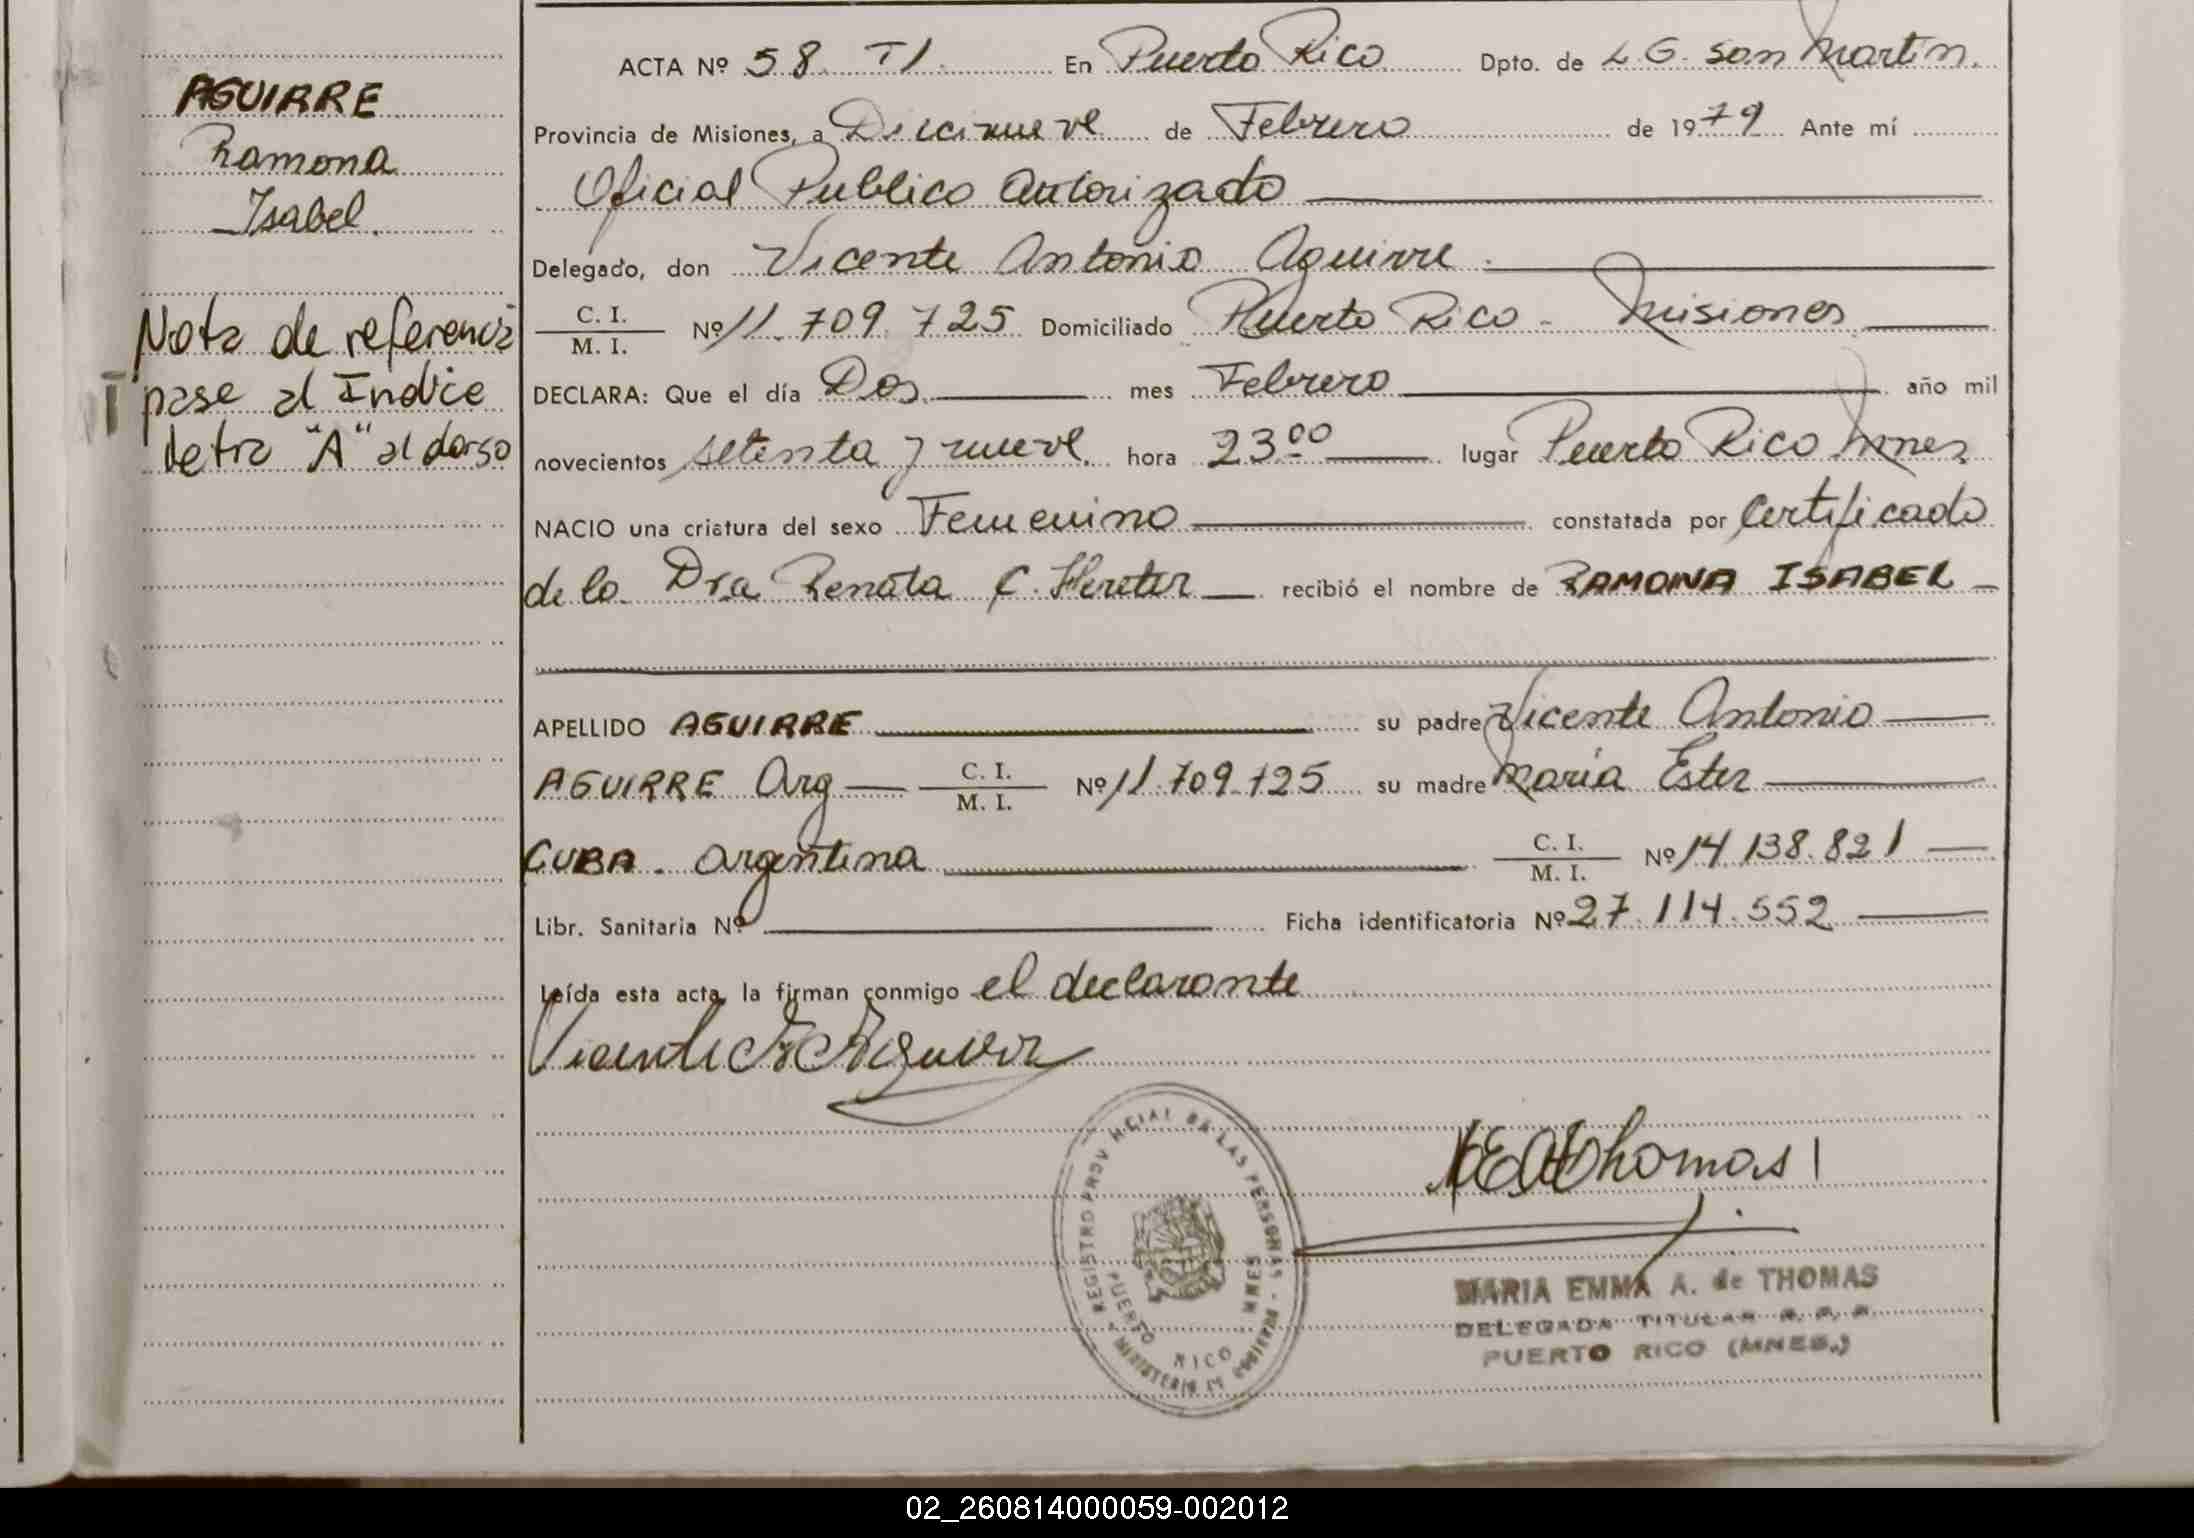 AGUIRRE
Ramona
Isabel.
Nota de referencia
pase al Indice
letra "A" al dorso
ACTA Nº 58. TI. En Puerto Rico Dpto. de L. G. San Martin.
Provincia de Misiones, a Diecinueve de Febrero de 1979 Ante mí
Oficial Publico autorizado
Delegado, don Vicente Antonio Aguirre.
C. I.
M. I.
Nº 11.709.725 Domiciliado Puerto Rico - Misiones
DECLARA: Que el día Dos mes Febrero año mil
novecientos setenta y nueve. hora 23⁰⁰ lugar Puerto Rico Mnes
NACIO una criatura del sexo Femenino constatada por Certificado
de la Dra Renata C. Hereter recibió el nombre de RAMONA ISABEL
APELLIDO AGUIRRE su padre Vicente Antonio
AGUIRRE Arg C. I.
M. I.
Nº 11.709.725 su madre Maria Ester
CUBA. Argentina C. I.
M. I.
Nº 14.138.821
Libr. Sanitaria Nº Ficha identificatoria Nº 27.114.552
Leída esta acta, la firman conmigo el declarante
Vicente A Aguirre
REGISTRO PROVINCIAL DE LAS PERSONAS - MINISTERIO DE GOBIERNO
PUERTO RICO MNES
MEA de Thomas
MARIA EMMA A. de THOMAS
DELEGADA TITULAR R. P. P.
PUERTO RICO (MNES.)
02_260814000059-002012